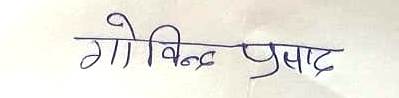 गोविन्द प्रसाद